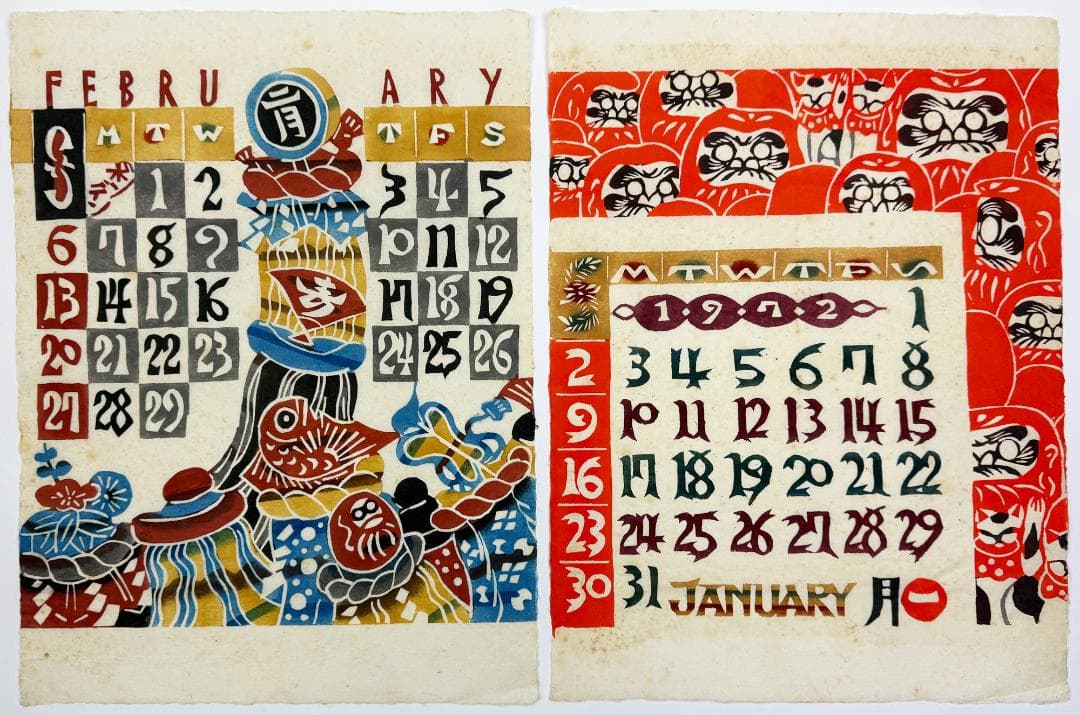 FEBRU ARY
二月
S M T W T F S
1 2 3 4 5
6 7 8 9 10 11 12
13 14 15 16 17 18 19
20 21 22 23 24 25 26
27 28 29
M T W T F S
1972 1
2 3 4 5 6 7 8
9 10 11 12 13 14 15
16 17 18 19 20 21 22
23 24 25 26 27 28 29
30 31 JANUARY 月一